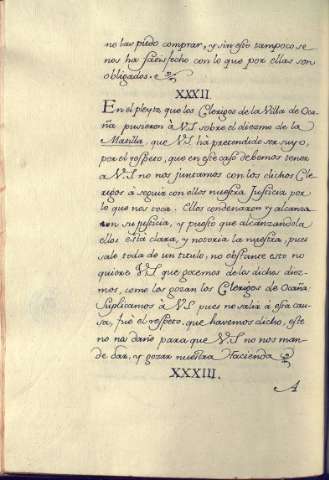 no las puedo comprar, y sin esto tampoco se
nos ha satisfecho con lo que por ellas son
obligados.
XXXII
En el pleyto que los Clerigos de la Villa de Oca-
ña pusieron à V.S sobre el diezmo de la
Matilla, que V.S hà pretendido ser suyo,
por el respeto, que en este caso debemos tener
a V.S no nos juntamos con los dichos Cle-
rigos à seguir con ellos nuestra Justicia por
lo que nos toca. Ellos condenaron y alcanza-
ron su justicia, y puesto que alcanzandola
ellos està clara, y notoria la nuestra, pues
sale toda de un titulo, no obstante esto no
quiere V.S que gozemos de los dichos diez-
mos, como los gozan los Clerigos de Ocaña:
Suplicamos à V.S pues no salir à esta cau-
sa, fuè el respeto, que havemos dicho, este
no nos dañe para que V.S no nos man-
de dar, y gozar nuestra Hacienda
XXXIII.
A